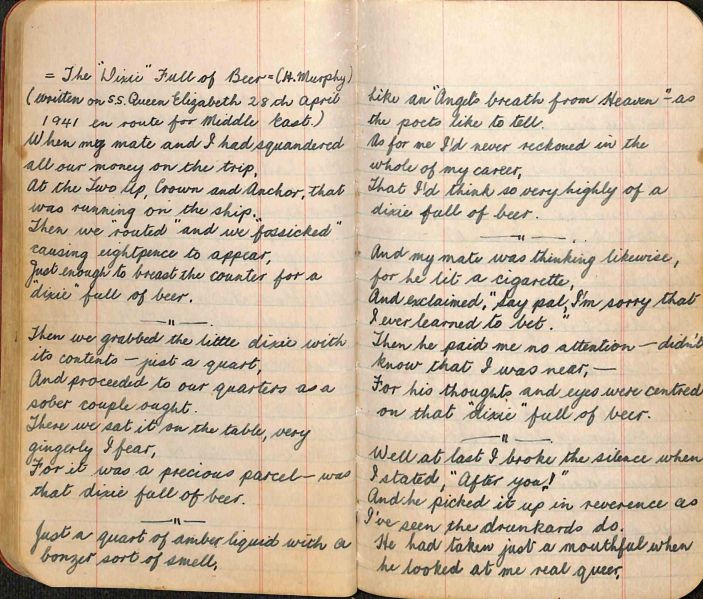 = The "Dixie" Full of Beer = (H. Murphy)
(written on S.S. Queen Elizabeth 28th April
1941 en route for Middle East.)
When my mate and I had squandered
all our money on the trip,
At the Two Up, Crown and Anchor, that
was running on the ship.
Then we "routed" and we "fossicked"
causing eightpence to appear,
Just enough to breast the counter for a
"dixie" full of beer.
— " —
Then we grabbed the little dixie with
its contents – just a quart,
And proceeded to our quarters as a
sober couple ought.
There we sat it on the table, very
gingerly I fear,
For it was a precious parcel – was
that dixie full of beer.
— " —
Just a quart of amber liquid with a
bonzer sort of smell,
Like an "Angel's breath from Heaven" – as
the poets like to tell.
As for me I'd never reckoned in the
whole of my career,
That I'd think so very highly of a
dixie full of beer.
— " —
And my mate was thinking likewise,
for he lit a cigarette,
And exclaimed, "Say pal, I'm sorry that
I ever learned to bet."
Then he paid me no attention – didn't
know that I was near, –
For his thoughts and eyes were centred
on that "dixie" full of beer.
— " —
Well at last I broke the silence when
I stated, "After you!"
And he picked it up in reverence as
I've seen the drunkards do.
He had taken just a mouthful when
he looked at me real queer,